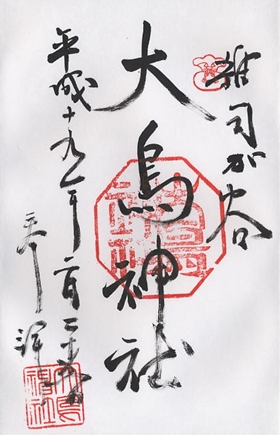 雑司が谷
大鳥神社
平成十九年一月二十五日
奉拝